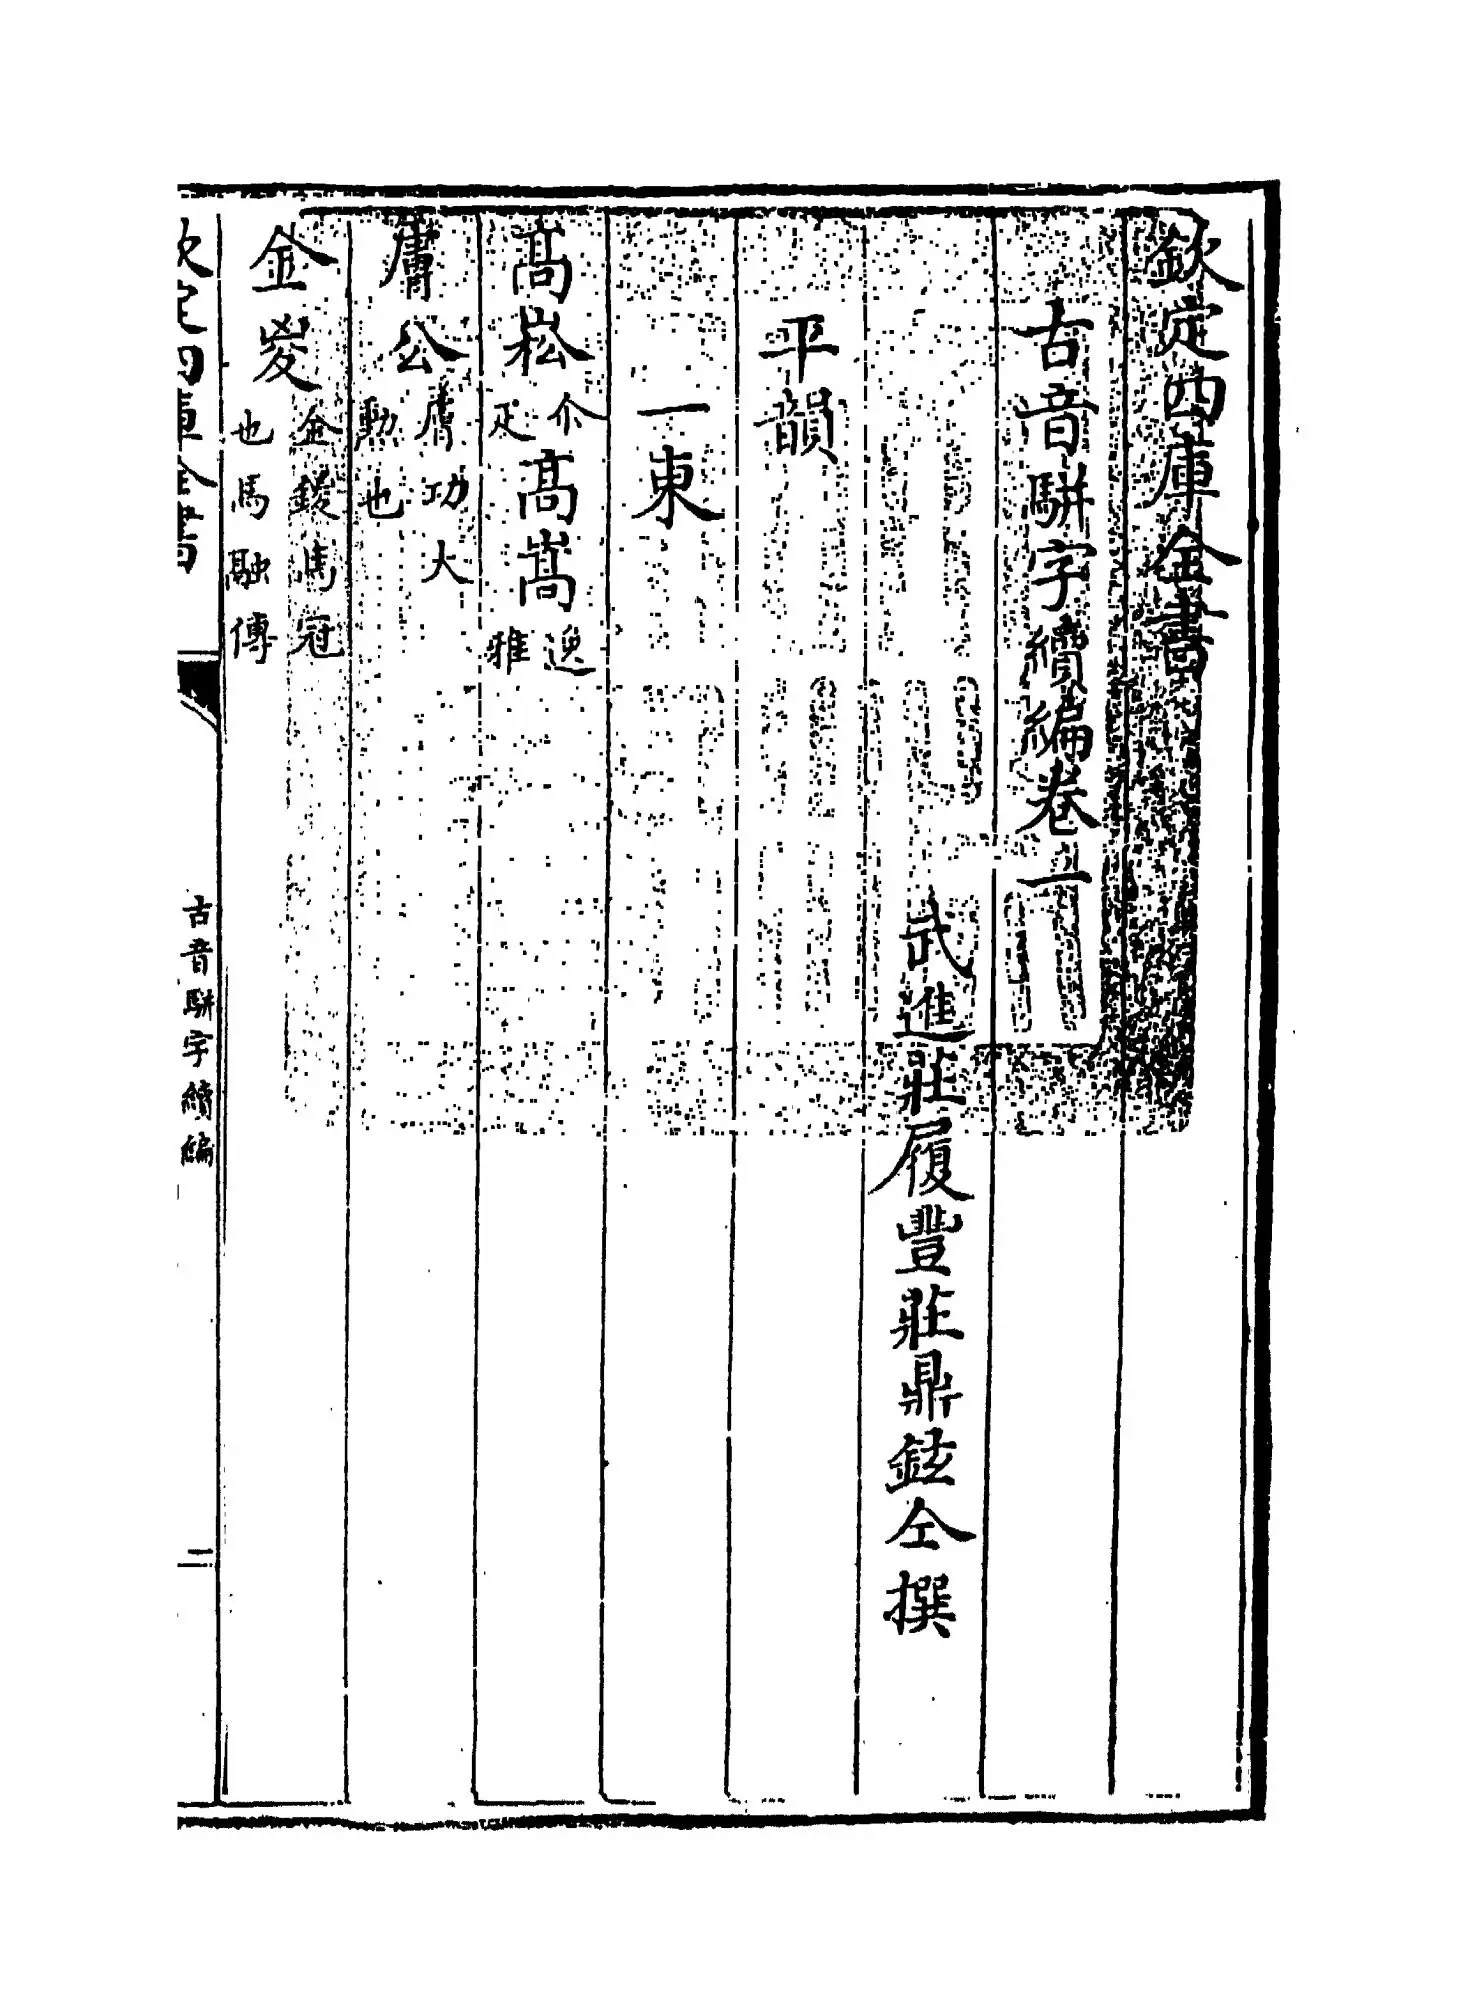 欽定四庫全書
古音駢字續編卷一
武進莊履豐莊鼎鉉仝撰
平韻
一東
高崧尒疋高嵩逸雅
膚公膚功大勲也
金㚇金鍐馬冠也馬融傳
欽定四庫全書
古音駢字續編
二